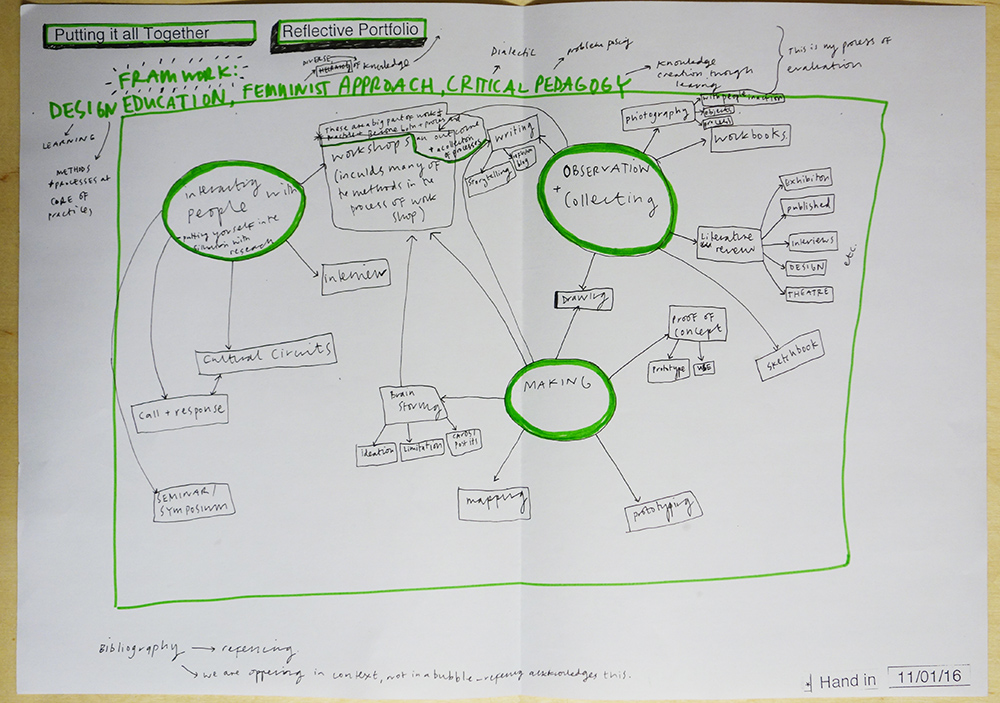 Putting it all Together
Reflective Portfolio
FRAMWORK:
DESIGN EDUCATION, FEMINIST APPROACH, CRITICAL PEDAGOGY
LEARNING
METHODS
+ PROCESSES AT
CORE OF
PRACTICES
of Knowledge
Dialectic
problem posing
Knowledge
creation though
This is my process of
evaluation
These are a big part of work &
an outcome
+ a collection
of processes
workshops
(inculds many of
the methods in the
process of work
shop)
writing
Storytelling
blog
photography
objects
process
workbooks.
OBSERVATION
+ Collecting
interacting with
people
- putting yourself into
with
research
interview
Cultural Circuits
Call + response
SEMINAR/
SYMPOSIUM
Literature
review
Exhibiton
published
interviews
DESIGN
THEATRE
etc.
Drawing
sketchbook
MAKING
Proof of
Concept
Prototype
Brain
Storming
Ideation
Limitation
CARDS/
Post its
mapping
prototyping
Bibliography → refencing
we are in context, not in a bubble - this.
Hand in
11/01/16